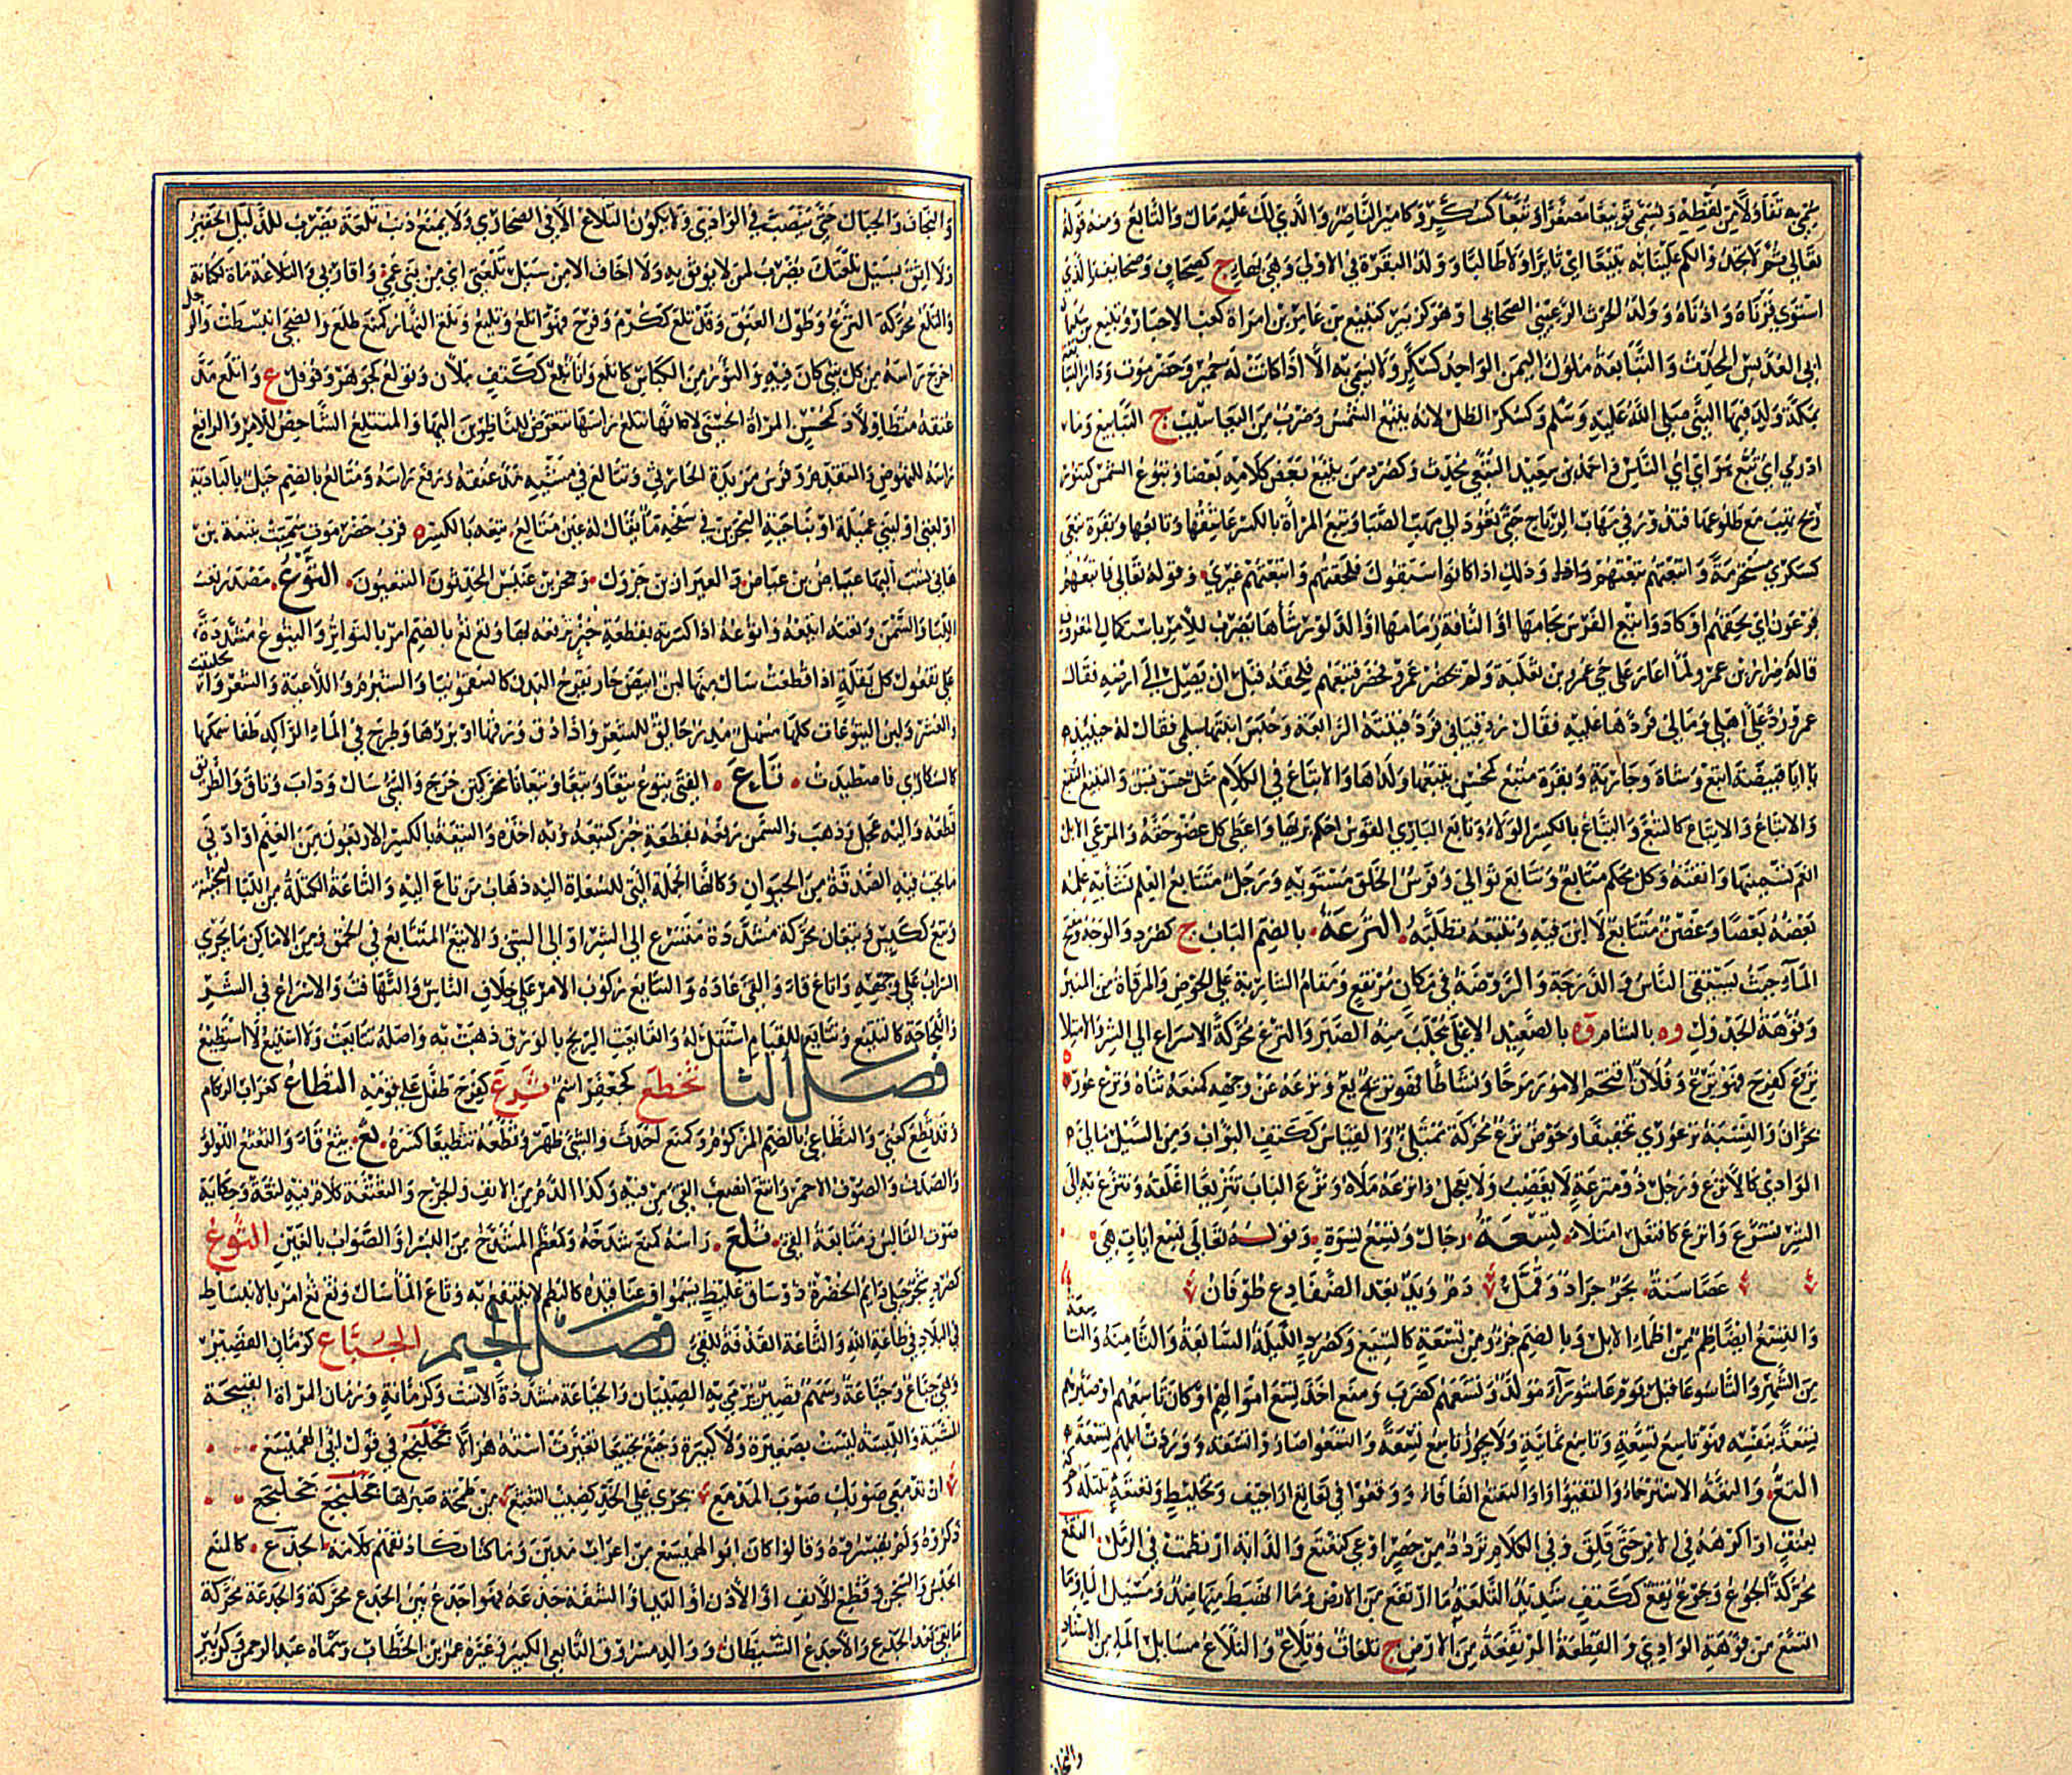 تفاؤلا من لفظه ويسمى تويبعا مصغرا وتبعا كسكر وكأمير الناصر والذي لك عليه مال والتابع ومنه قوله
تعالى ثم لا تجدوا لكم علينا به تبيعا اي ثائرا ولا طالبا وولد البقرة في الاولى وهي بهاء ج كصحاف وصحائف والذي
استوى قرناه واذناه وولد الحرث الرعيني الصحابي او هو كزبير كتبيع بن عامر بن امراة كعب الاحبار وتبيع بن سليمان
ابي العدبس المحدث والتبابعة ملوك اليمن الواحد كسكر ولا يسمى به الا اذا كانت له حمير وحضرموت ودار التبابعة
بمكة ولد فيها النبي صلى الله عليه وسلم وكسكر الظل لانه يتبع الشمس وضرب من اليعاسيب ج التبابيع وما
ادري اي تبع هو اي اي الناس واحمد بن سعيد التبعي محدث وكصرد من يتبع بعض كلامه بعضا وتبوع الشمس كتنور
ريح تهب مع طلوعها فتدور في مهاب الرياح حتى تعود الى مهب الصبا وتبع المراة بالكسر عاشقها وتابعها وبقرة تبعى
كسكرى مستحرمة واتبعتهم تبعتهم وذلك اذا كانوا سبقوك فلحقتهم واتبعتهم غيري وقوله تعالى فاتبعهم
فرعون اي لحقهم او كاد واتبع الفرس لجامها او الناقة زمامها او الدلو رشاءها يضرب للامر باستكمال المعروف
قاله ضرار بن عمرو لما اغار على حي عمرو بن ثعلبة ولم يحضر عمرو فحضر فتبعهم فلحقه قبل ان يصل الى ارضه فقال
عمرو رد علي اهلي ومالي فردها عليه فقال رد قيناتي فرد قينته الرائعة وحبس ابنتها سلمى فقال له حينئذ
يا ابا قبيصة اتبع وشاة وجارية وبقرة متبع كمحسن يتبعها ولدها والاتباع في الكلام مثل حسن بسن والتتبيع التتبع
والاتباع والاتباع كالتبع والتباع بالكسر الولاء وتابع الباري القوس احكم بريها واعطى كل عضو حقه والمرعى الابل
انعم تسمينها واتقنه وكل محكم متابع وتتابع توالى وفرس متتابع الخلق مستويه ورجل متتابع العلم يشابه علمه
بعضه بعضا وغصن متتابع لا ابن فيه وتتبعه تطلبه الترعة بالضم الباب ج كصرد والوجه ومفتح
الماء حيث يستقي الناس والدرجة والروضة في مكان مرتفع ومقام الشاربة على الحوض والمرقاة من المنبر
وفوهة الجدول وة بالشام وة بالصعيد الاعلى يجلب منه الصبر والترع محركة الاسراع الى الشر والامتلاء
ترع كفرح فهو ترع وفلان اقتحم الامور مرحا ونشاطا فهو تريع وترعه عن وجهه كمنعه ثناه وترع عوز ة
بحران والنسبة ترعوزي تخفيفا وحوض ترع محركة ممتلئ والقياس ككتف التراب ومن السيل مالئ
الوادي كالاترع ورجل ذو مترعة لا يغضب ولا يعجل واترعه ملاه وترع الباب تتريعا اغلقه وتترع به الى
الشر تسرع واترع كافتعل امتلا تسعة رجال وتسع نسوة وقوله تعالى تسع ايات هي
عصا سنة بحر جراد وقمل دم ويد بعد الضفادع طوفان
والتسع ايضا ظمء من اظماء الابل وبالضم جزء من تسعة كالتسيع وكصرد الليلة السابعة والثامنة والتاسعة
من الشهر والتاسوعا قبل يوم عاشوراء مولد وتسعهم كضرب ومنع اخذ تسع اموالهم او كان تاسعهم او صيرهم
تسعة بنفسه فهو تاسع تسعة وتاسع ثمانية ولا يجوز تاسع تسعة واتسعوا صاروا تسعة ووردت ابلهم تسعا
التع والتعة الاسترخاء والتقيؤ والتعتع الفافاء ووقعوا في تعاتع اراجيف وتخليط وتعتعه تلتله وحركه
بعنف او اكرهه في الامر حتى قلق وفي الكلام تردد من حصر او عي كتتعتع والدابة ارتطمت في الرمل التقع
محركة الجوع وجوع تقع ككتف شديد التلعة ما ارتفع من الارض وما انهبط منها ضد ومسيل الماء وما
اتسع من فوهة الوادي والقطعة المرتفعة من الارض ج تلعات وتلاع والتلاع مسايل الماء من الاسناد
والنجاف
والنجاف والجبال حتى ينصب في الوادي ولا يكون التلاع الا في الصحاري ولا يمنع ذنب تلعة يضرب للذليل الحقير
ولا اثق بسيل تلعتك يضرب لمن لا يوثق به ولا اخاف الا من سيل تلعتي اي من بني عمي واقاربي والتلاعة ماءة لكنانة
والتلع محركة الترع وطول العنق وقد تلع ككرم وفرح فهو اتلع وتليع وتلع النهار كمنع طلع والضحى انبسطت والرجل
اخرج راسه من كل شيء كان فيه والثور من الكناس كاتلع واناء تلع ككتف ملان وتولع كجوهر وفوفل ع واتلع مد
عنقه متطاولا وكمحسن المراة الحسناء لانها تتلع راسها تتعرض للناظرين اليها والمتتلع الشاخص للامر والرافع
راسه للنهوض والتقدم وفرس مزيدة الحارثي وتتالع في مشيه مد عنقه ورفع راسه ومتالع بالضم جبل بالبادية
او لغني او لبني عميلة او بناحية البحرين في سفحه ماء يقال له عين متالع تنعة بالكسر ة قرب حضرموت سميت بتنعة بن
هاني نسب اليها عياض بن عياض والعيزار بن جرول وحجر بن عنبس المحدثون التنعيون التوع مصدر تعت
اللبا والسمن وتعته اتوعه واتيعه اذا كسرته بقطعة خبز ترفعه بها وتع تع بالضم امر بالتواضع واليتوع مشددة
على يفعول كل بقلة اذا قطعت سال منها لبن ابيض حار يقرح البدن كالسقمونيا والشبرم واللاعية والعشر والحلتيت
والعشر ولبن اليتوعات كلها مسهل مدر حالق للشعر واذا دق ورقها او بزرها وطرح في الماء الراكد طفا سمكها
كالسكارى فاصطيدت تاع القيء يتيع تيعا وتيعا وتيعانا محركتين خرج والشيء سال وذاب وتاق والطريق
قطعه واليه عجل وذهب والسمن رفعه بقطعة خبز كتيعه وبه اخذه والتيعة بالكسر الاربعون من الغنم او ادنى
ما يجب فيه الصدقة من الحيوان وكانها الجملة التي للسعاة اليه ذهاب من تاع اليه والتاعة الكتلة من اللبا الثخينة
وتيع ككيس وتيعان محركة مشددة متسرع الى الشر او الى الشيء والاتيع المتتايع في الحمق ومن الاماكن ما يجري
السراب على وجهه واتاع قاء والقيء عاده والتتايع ركوب الامر على خلاف الناس والتهافت والاسراع في الشر
واللجاجة كالتتيع وتتايع للقيام استقل له والقابعت الريح بالورق ذهبت به واصله تتايعت ولا استيع لا استطيع
فصل الثا ثخطع كجعفر اسم ثرع كفرح طفل على قومه الثطاع كغراب الزكام
وقد ثطع كعني والثطاعي بالضم المزكوم وكمنع احدث والشيء ظهر وثطعه تثطيعا كسره ثع يثع قاء والثعثع اللؤلؤ
والصدف والصوف الاحمر وانثع انصب القيء من فيه وكذا الدم من الانف والجرح والثعثعة كلام فيه لثغة وحكاية
صوت القالس ومتابعة القيء ثلع راسه كمنع شدخه وكمعظم المشدخ من البسر او الصواب بالغين الثوع
كصرد شجر جبلي دائم الخضرة ذو ساق غليظ يسمو وعناقيده كالبطم لا ينتفع به وثاع الماء سال وثع ثع امر بالانبساط
في البلاد في طاعة الله والثاعة القذفة للقيء فصل الجيم الجباع كرمان القصير
وهي جباع وجباعة وسهم قصير يرمي به الصبيان والجباعة مشددة الاست وكرمانة ورمان المراة القبيحة
المشية واللبسة ليست بصغيرة ولا كبيرة وجبع تجبيعا تغيرت استه هزالا جحلنجع في قول ابي الهميسع
ان تمنعي صوبك صوب المدمع يجري على الخد كضئب الثعثع من طمحة صبيرها جحلنجع
ذكروه ولم يفسروه وقالوا كان ابو الهميسع من اعراب مدين وما كنا نكاد نفهم كلامه الجدع كالمنع
الحبس والسجن وقطع الانف او الاذن او اليد او الشفة جدعه فهو اجدع بين الجدع محركة والجدعة محركة
ما بقي بعد الجدع والاجدع الشيطان ووالد مسروق التابعي الكبير وغيره عمر بن الخطاب وسماه عبد الرحمن وكزبير